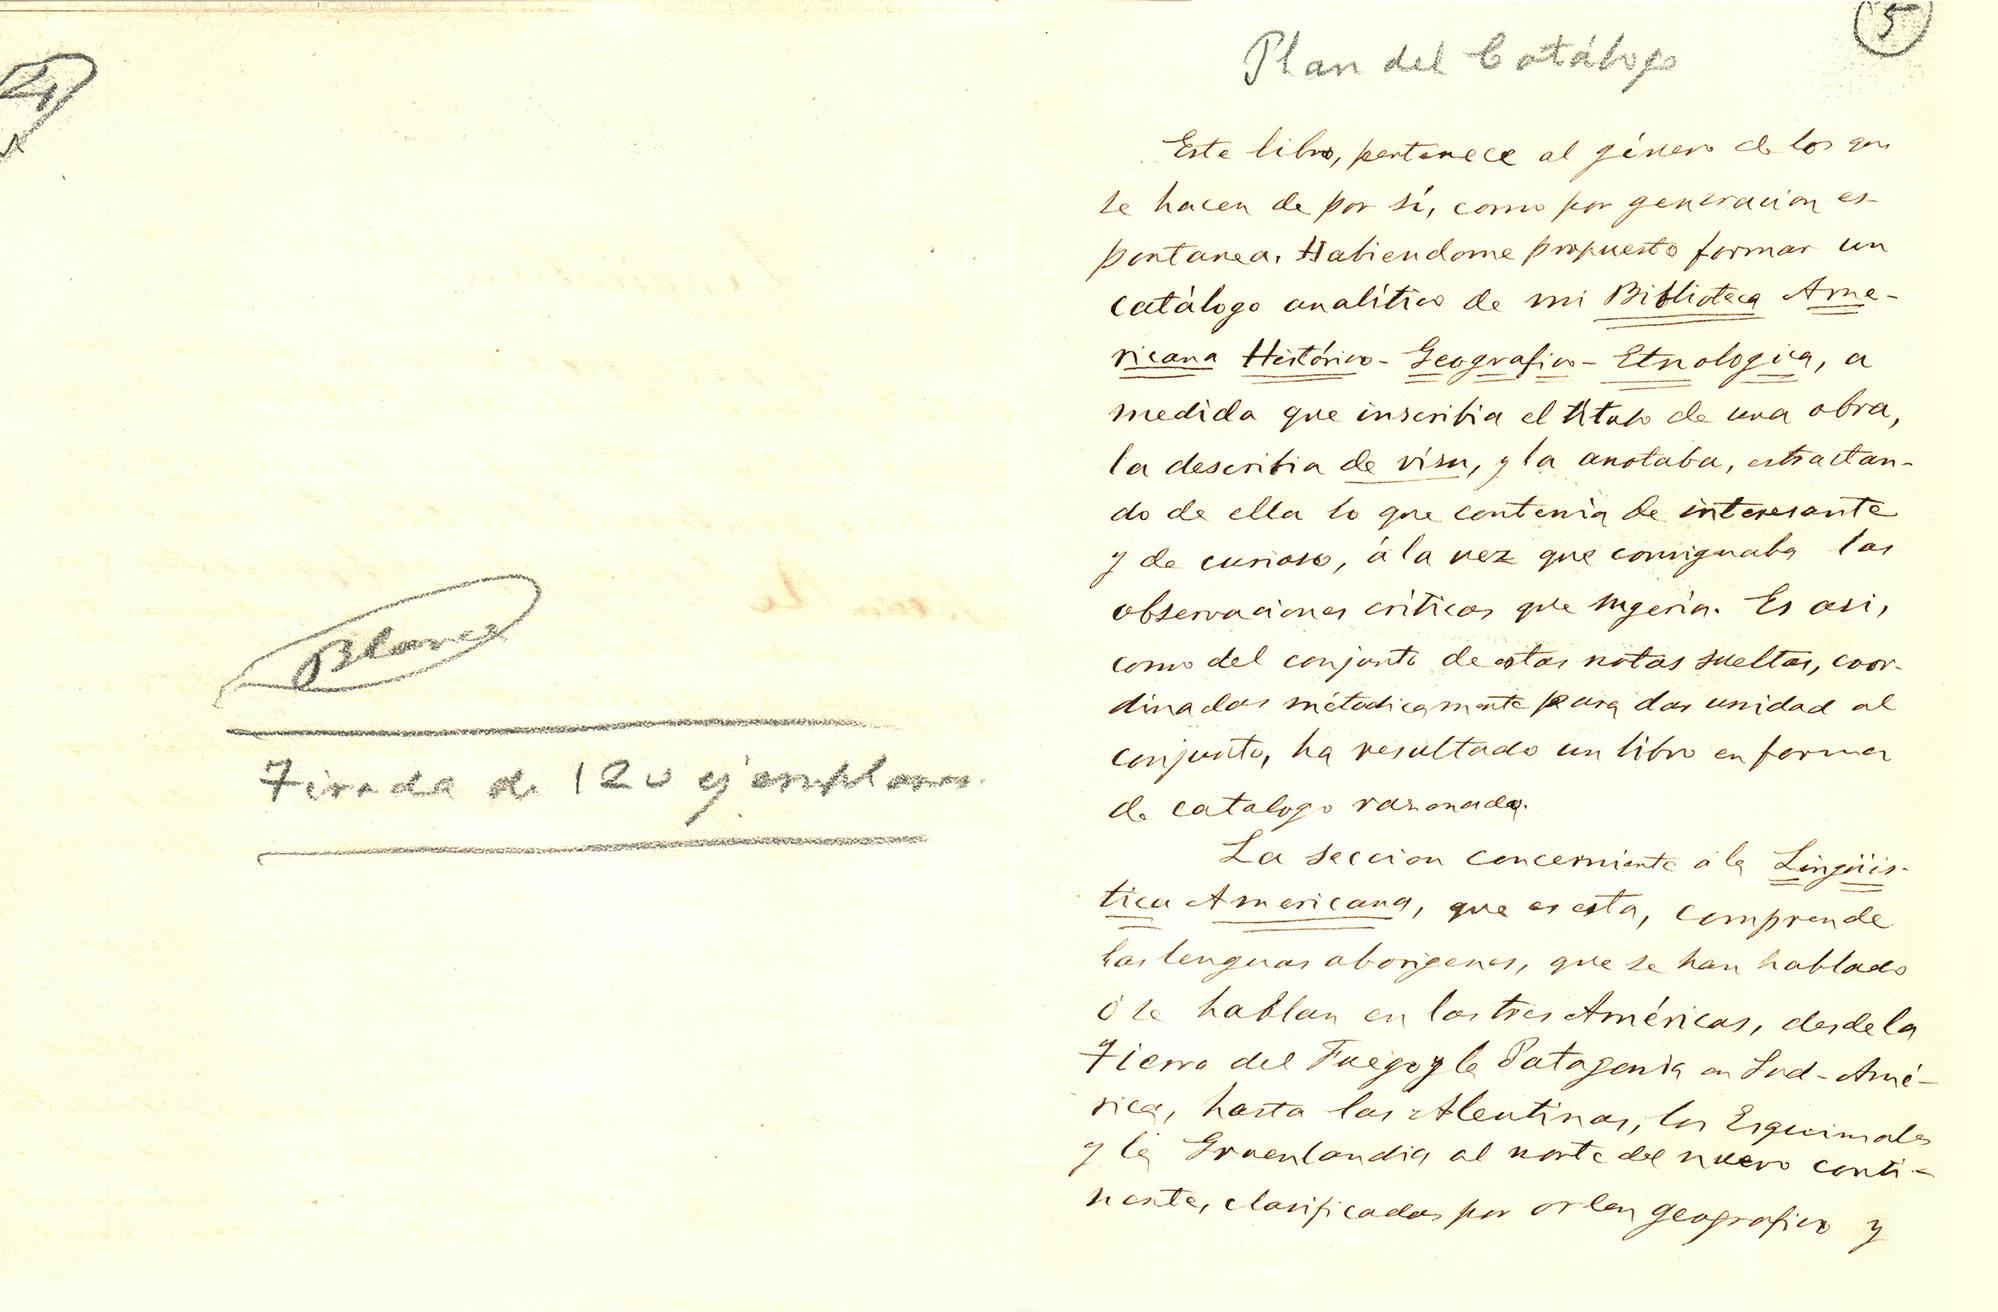 4
Blanco
Tirada de 120 ejemplares.
5
Plan del Catálogo
Este libro, pertenece al género de los que
se hacen de por sí, como por generacion es-
pontanea. Habiendome propuesto formar un
catálogo analítico de mi Biblioteca Ame-
ricana Histórico-Geografico-Etnologica, a
medida que inscribia el titulo de una obra,
la describia de visu, y la anotaba, estractan-
do de ella lo que contenia de interesante
y de curioso, á la vez que consignaba las
observaciones críticas que sugeria. Es asi,
como del conjunto de estas notas sueltas, coor-
dinadas métodicamente para dar unidad al
conjunto, ha resultado un libro en forma
de catalogo razonado.
La seccion concerniente á la Lingüis-
tica Americana, que es esta, comprende
las lenguas aborigenes, que se han hablado
ó se hablan en las tres Américas, desde la
Tierra del Fuego y la Patagonia en Sud-Amé-
rica, hasta las Aleutinas, los Esquimales
y la Groenlandia al norte del nuevo conti-
nente, clasificadas por orden geografico y